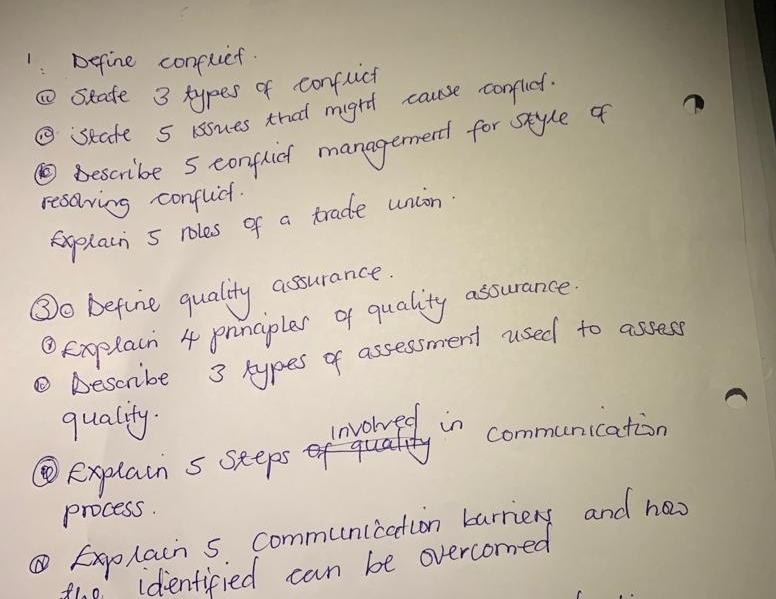 1. Define conflict.
State 3 types of conflict
State 5 issues that might cause conflict.
Describe 5 conflict management for style of
resolving conflict.
Explain 5 roles of a trade union.
③ Define quality assurance.
Explain 4 principles of quality assurance.
Describe 3 types of assessment used to assess
quality.
involved
Explain 5 steps of quality in communication
process.
Explain 5. Communication barriers and how
the identified can be overcomed